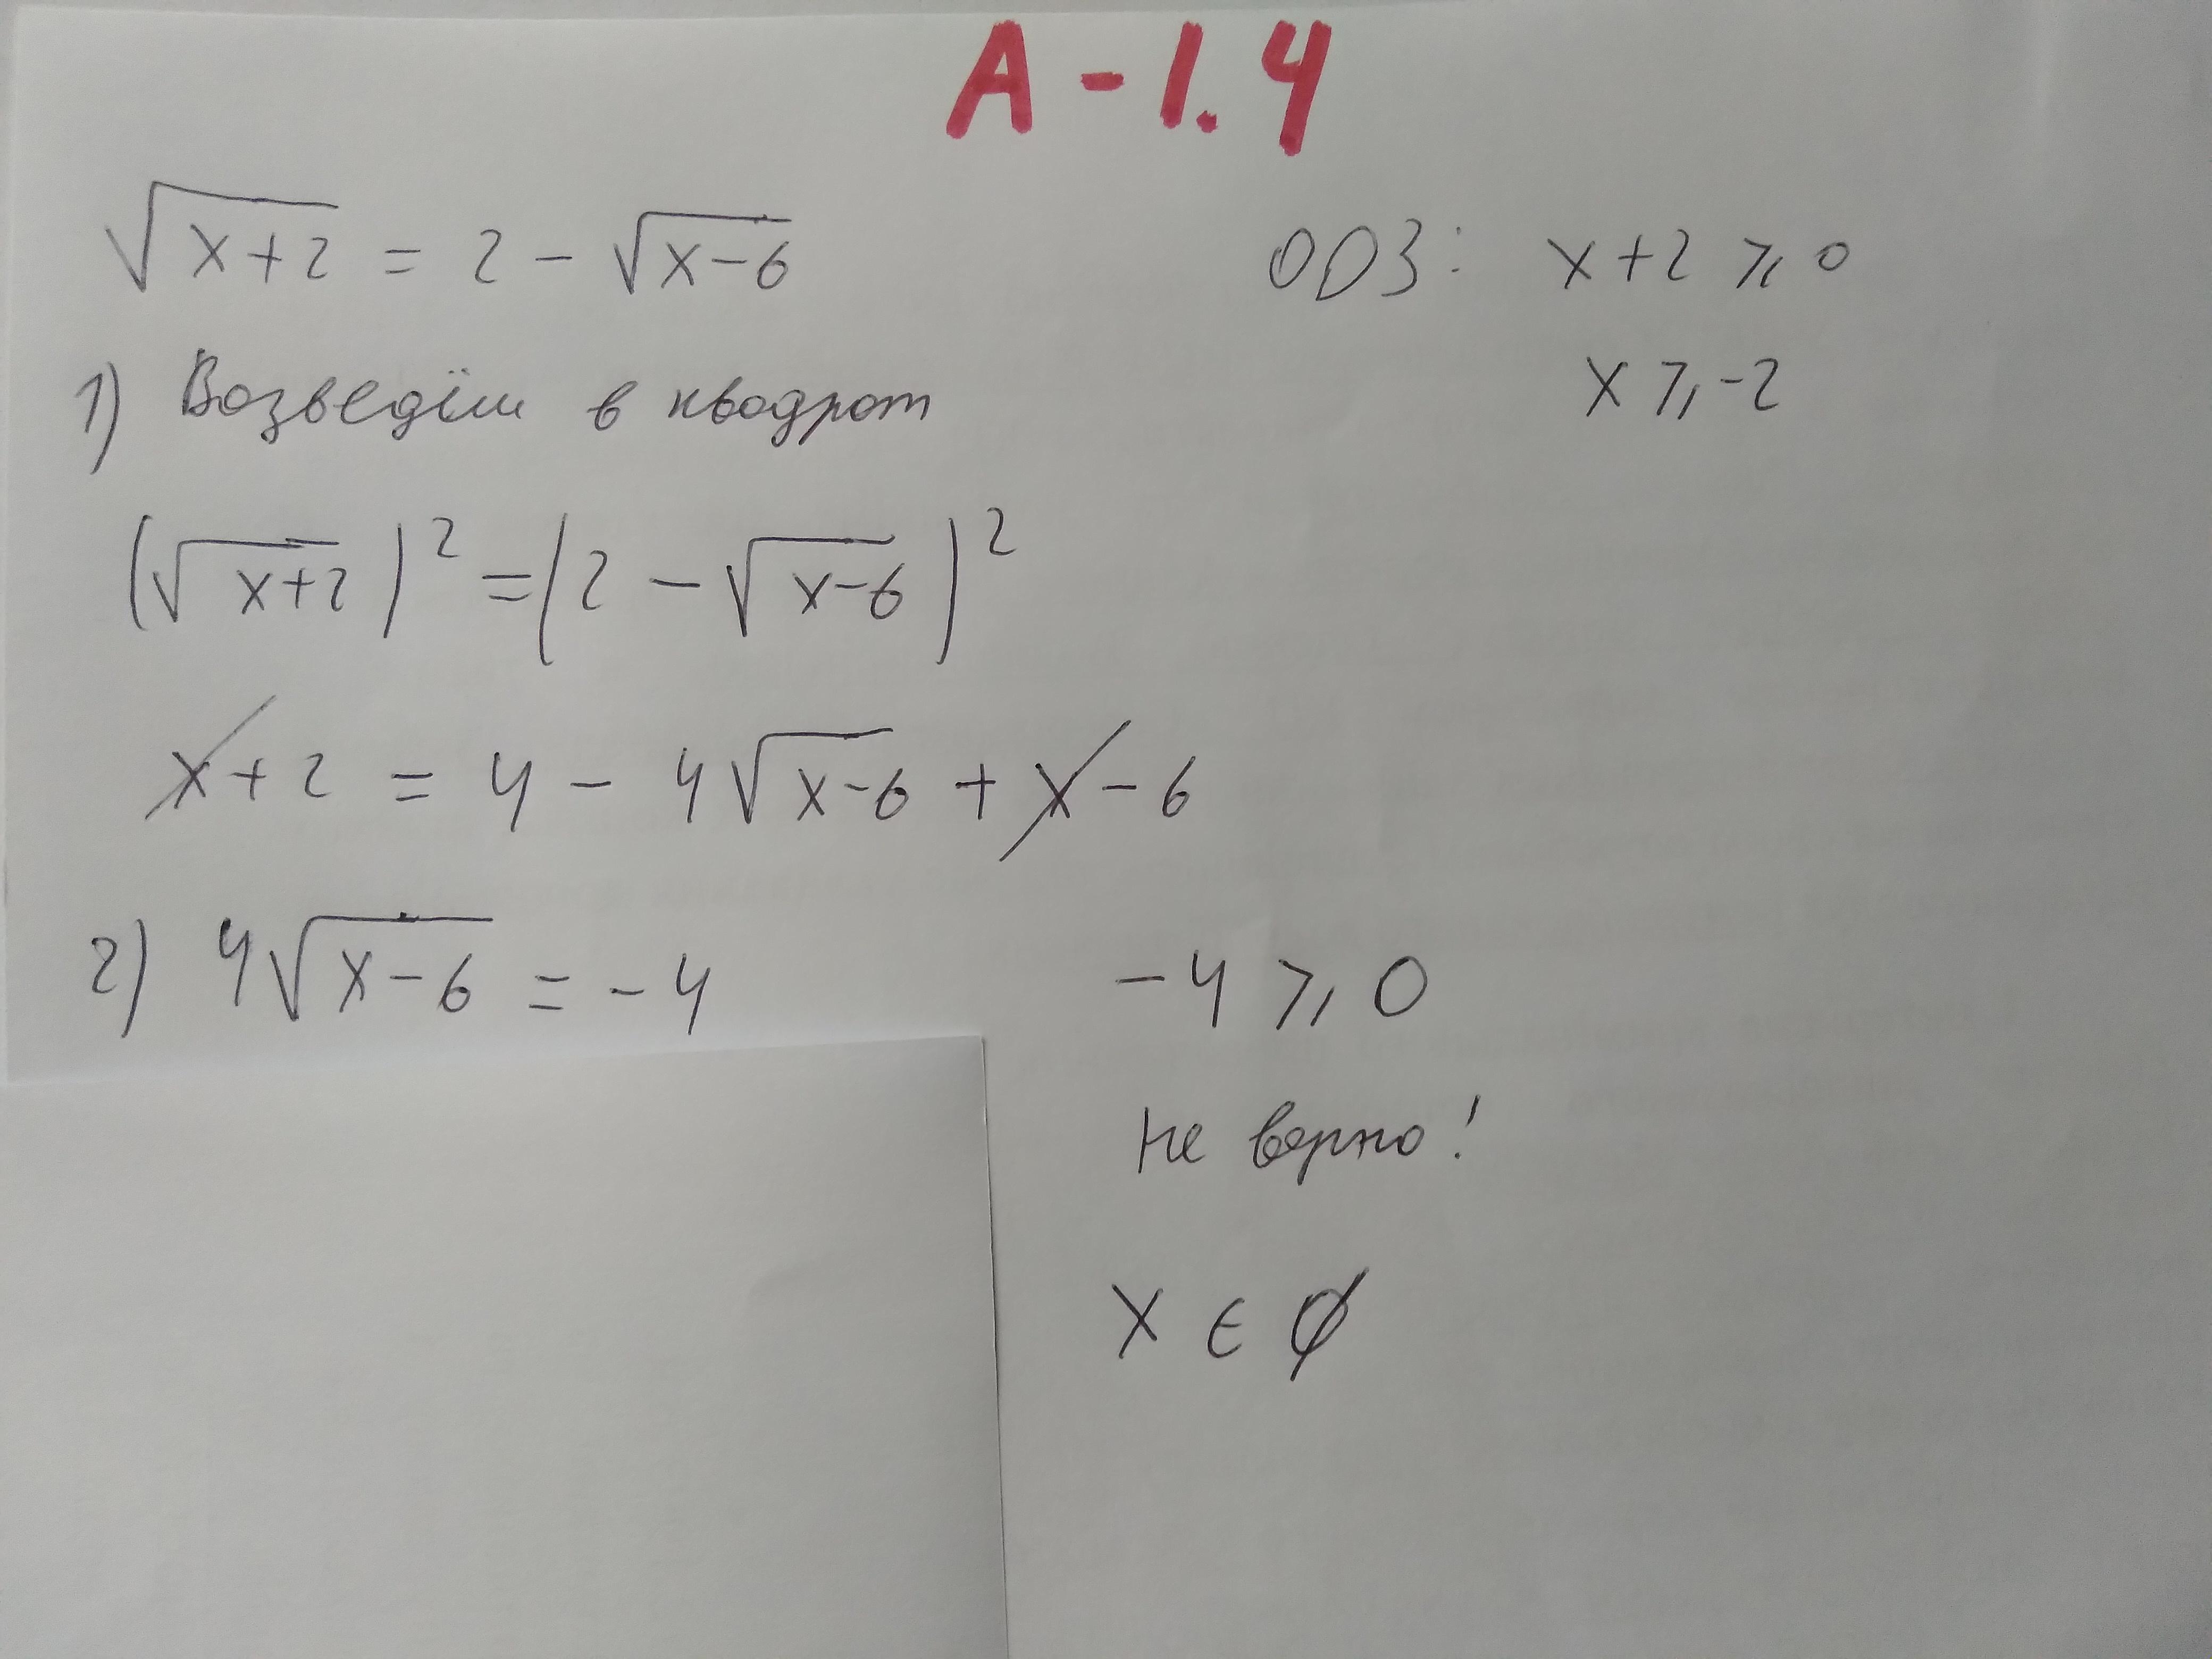 A - 1.4
√(x+2) = 2 - √(x-6)
ОДЗ: x+2 ⩾ 0
x ⩾ -2
1) Возведём в квадрат
(√(x+2))² = (2 - √(x-6))²
x+2 = 4 - 4√(x-6) + x - 6
2) 4√(x-6) = -4
-4 ⩾ 0
не верно!
x ∈ ∅